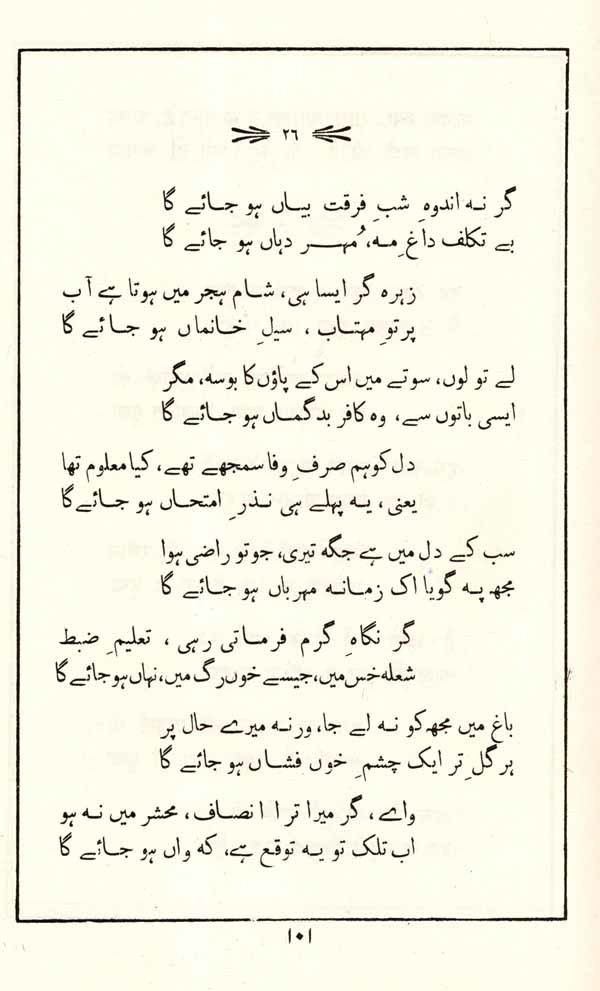 ٢٦
گر نہ اندوہِ شبِ فرقت بیاں ہو جائے گا
بے تکلف داغِ مہ، مُہر دہاں ہو جائے گا
زہرہ گر ایسا ہی، شام ہجر میں ہوتا ہے آب
پرتوِ مہتاب، سیلِ خانماں ہو جائے گا
لے تو لوں، سوتے میں اس کے پاؤں کا بوسہ، مگر
ایسی باتوں سے، وہ کافر بدگماں ہو جائے گا
دل کو ہم صرفِ وفا سمجھے تھے، کیا معلوم تھا
یعنی، یہ پہلے ہی نذرِ امتحاں ہو جائے گا
سب کے دل میں ہے جگہ تیری، جو تو راضی ہوا
مجھ پہ گویا اک زمانہ مہرباں ہو جائے گا
گر نگاہِ گرم فرماتی رہی، تعلیمِ ضبط
شعلہ خس میں، جیسے خوں رگ میں، نہاں ہو جائے گا
باغ میں مجھ کو نہ لے جا، ورنہ میرے حال پر
ہر گلِ تر ایک چشمِ خوں فشاں ہو جائے گا
واے، گر میرا ترا انصاف، محشر میں نہ ہو
اب تلک تو یہ توقع ہے، کہ واں ہو جائے گا
١٠١